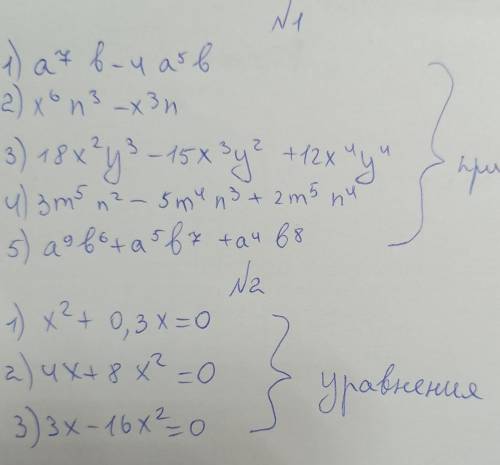 N1
1) a⁷ b - 4 a⁵ b
2) x⁶ n³ - x³ n
3) 18x²y³ - 15x³y² + 12x⁴y⁴
4) 3m⁵ n² - 5m⁴ n³ + 2m⁵ n⁴
5) a⁹b⁶ + a⁵b⁷ + a⁴ b⁸
N2
1) x² + 0,3x = 0
2) 4x + 8x² = 0
3) 3x - 16x² = 0
уравнения